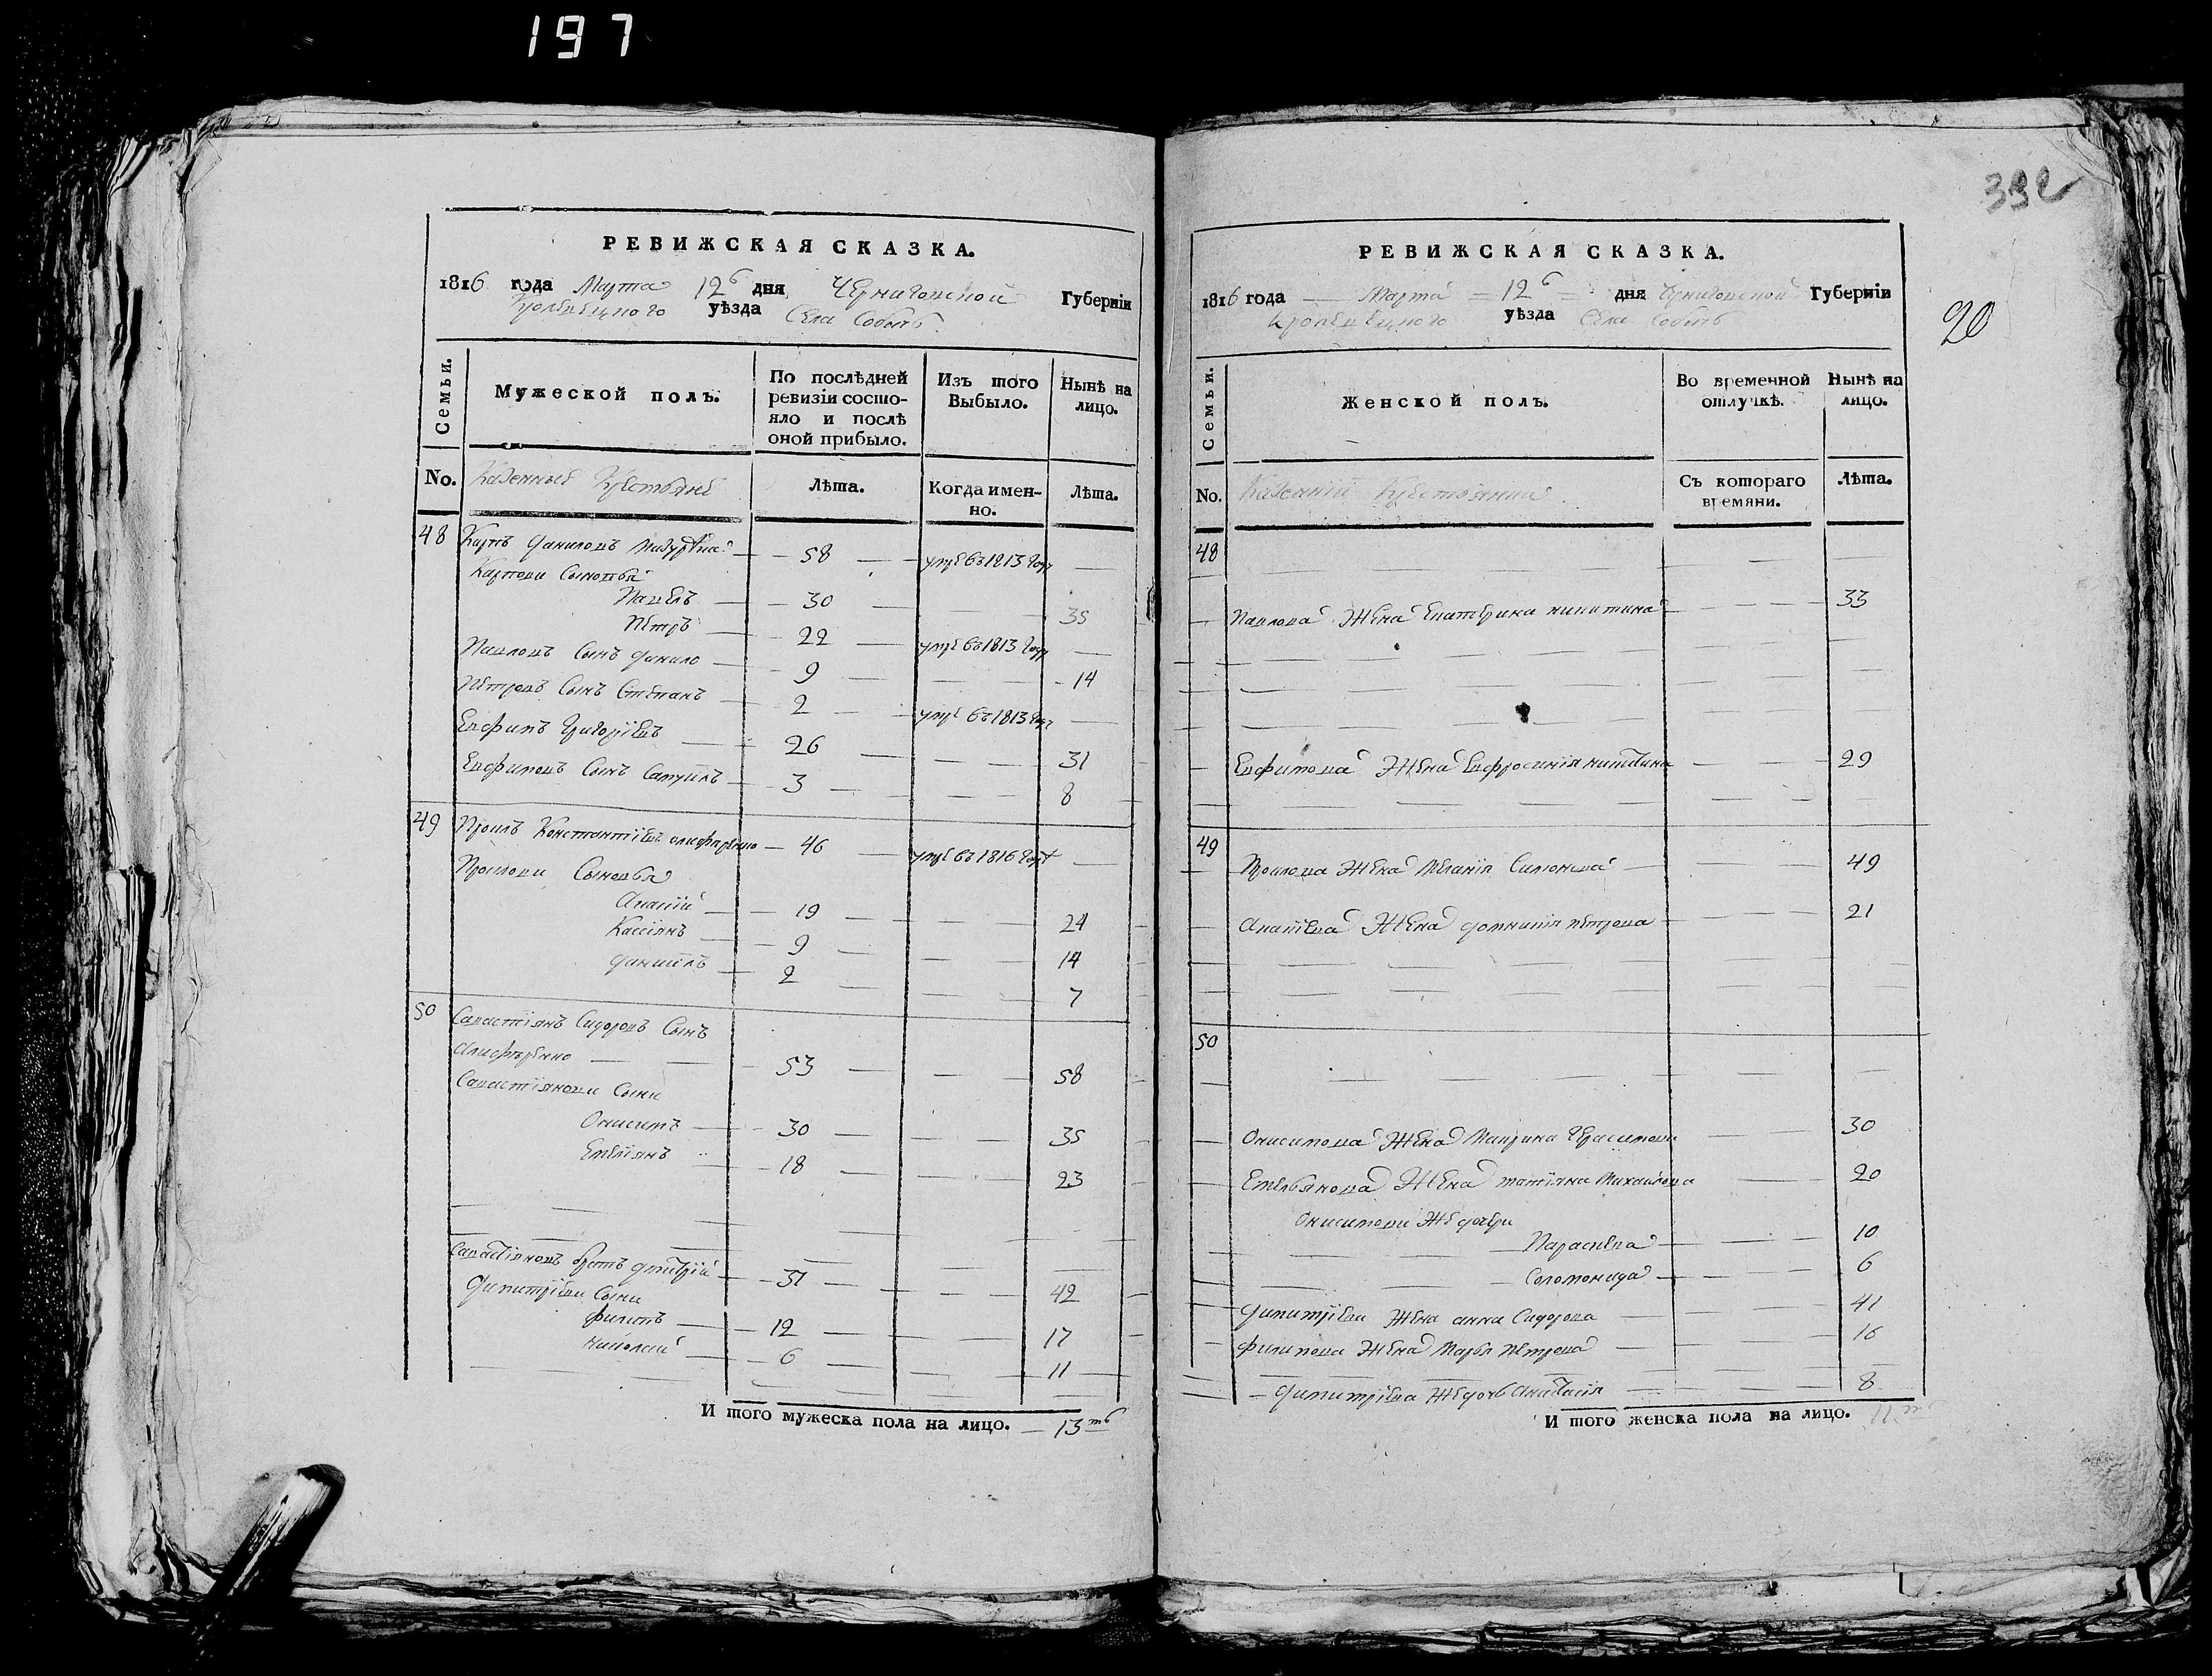 197
392
20
РЕВИЖСКАЯ СКАЗКА.
1816 года Марта 12 дня Черниговской Губерніи
Кролевецкого уѣзда Села Собычъ
Семьи.
Мужеской полъ.
По послѣдней ревизіи состояло и послѣ оной прибыло.
Изъ того Выбыло.
Нынѣ на лицо.
No. Казенные Крестьяне
Лѣта.
Когда именно.
Лѣта.
48 Карпъ Даниловъ — 58 — умре въ 1813 году —
Карпови Сыновья
Павелъ — 30 — 35
Петръ — 22 умре въ 1813 году —
Павловъ Сынъ Данило — 9 — 14
Петровъ Сынъ Степанъ — 2 — умре въ 1813 году —
Евфимъ Григоріевъ — 26 — 31
Евфимовъ Сынъ Самуилъ — 3 — 8
49 Проилъ Константіевъ — 46 — умре въ 1816 году —
Проилови Сыновья
Ананій — 19 — 24
Кассіянъ — 9 — 14
Даніилъ — 2 — 7
50 Савастіянъ Сидоровъ Сынъ
Алиференко — 53 — 58
Савастіянови Сыни
Онисимъ — 30 — 35
Емеліянъ — 18 — 23
Савастіяновъ братъ Дмитрій — 37 — 42
Димитріеви Сыни
Филипъ — 12 — 17
Николай — 6 — 11
И того мужеска пола на лицо. — 13
РЕВИЖСКАЯ СКАЗКА.
1816 года — Марта — 12 — дня Черниговской Губерніи
Кролевецкого уѣзда Села Собычъ
Семьи.
Женской полъ.
Во временной отлучкѣ.
Нынѣ на лицо.
No. Казенніи Крестьянки
Съ котораго времяни.
Лѣта.
48
Павлова Жена Екатерина Никитина — 33
Евфимова Жена Евфросинія Никитина — 29
49
Проилова Жена Меланія — 49
Ананіева Жена Домникія Петрова — 21
50
Онисимова Жена Марина Герасимова — 30
Емельянова Жена Татіяна Михайлова — 20
Онисимови Же дочери
Параскева — 10
Соломонида — 6
Димитріева Жена Анна Сидорова — 41
Филипова Жена Марья Петрова — 16
Димитріева Же дочь Анастасія — 8
И того женска пола на лицо. 11